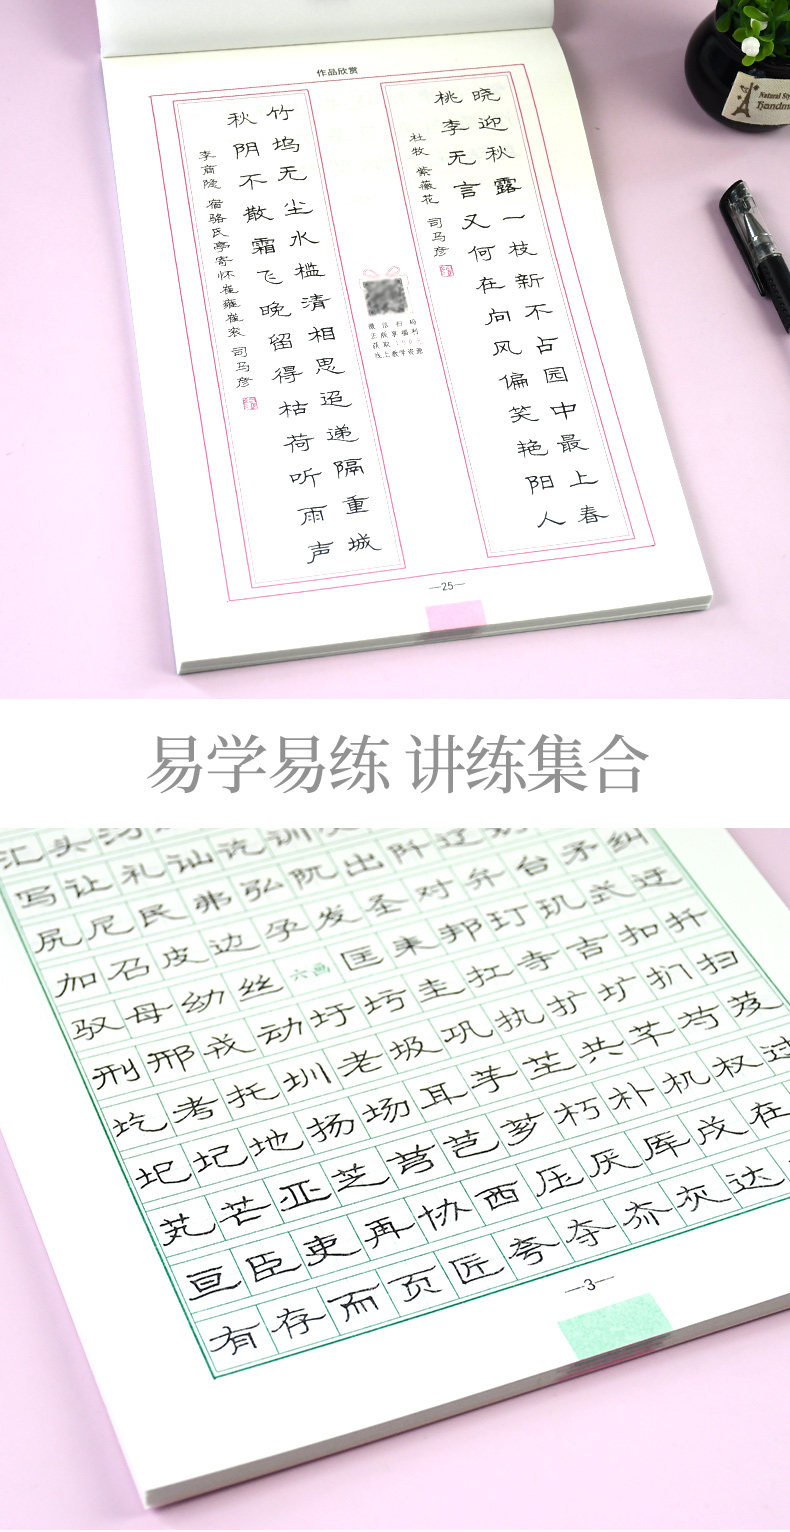 作品欣赏
晓迎秋露一枝新不占园中最上春
桃李无言又何在向风偏笑艳阳人
杜牧 紫薇花 司马彦
微信扫码
正版享福利
获取
线上教学资源
竹坞无尘水槛清相思迢递隔重城
秋阴不散霜飞晚留得枯荷听雨声
李商隐 宿骆氏亭寄怀崔雍崔衮 司马彦
—25—
Natural Sty
handm
易学易练 讲练集合
汇头
写让礼讪讫训
尻尼民弗弘阢出阡辽
加召皮边孕发圣对弁台矛纠
驭母幼丝六画匡耒邦玎玑式迂
刑邢戎动圩圬圭扛寺吉扣扦
圪考托圳老圾巩执扩圹扪扫
圯圮地扬场耳芋芏共芊芍芨
芄芒亚芝芎芑芗朽朴机权过
亘臣吏再协西压厌厍戌在
有存而页匠夸夺夼灰达
—3—